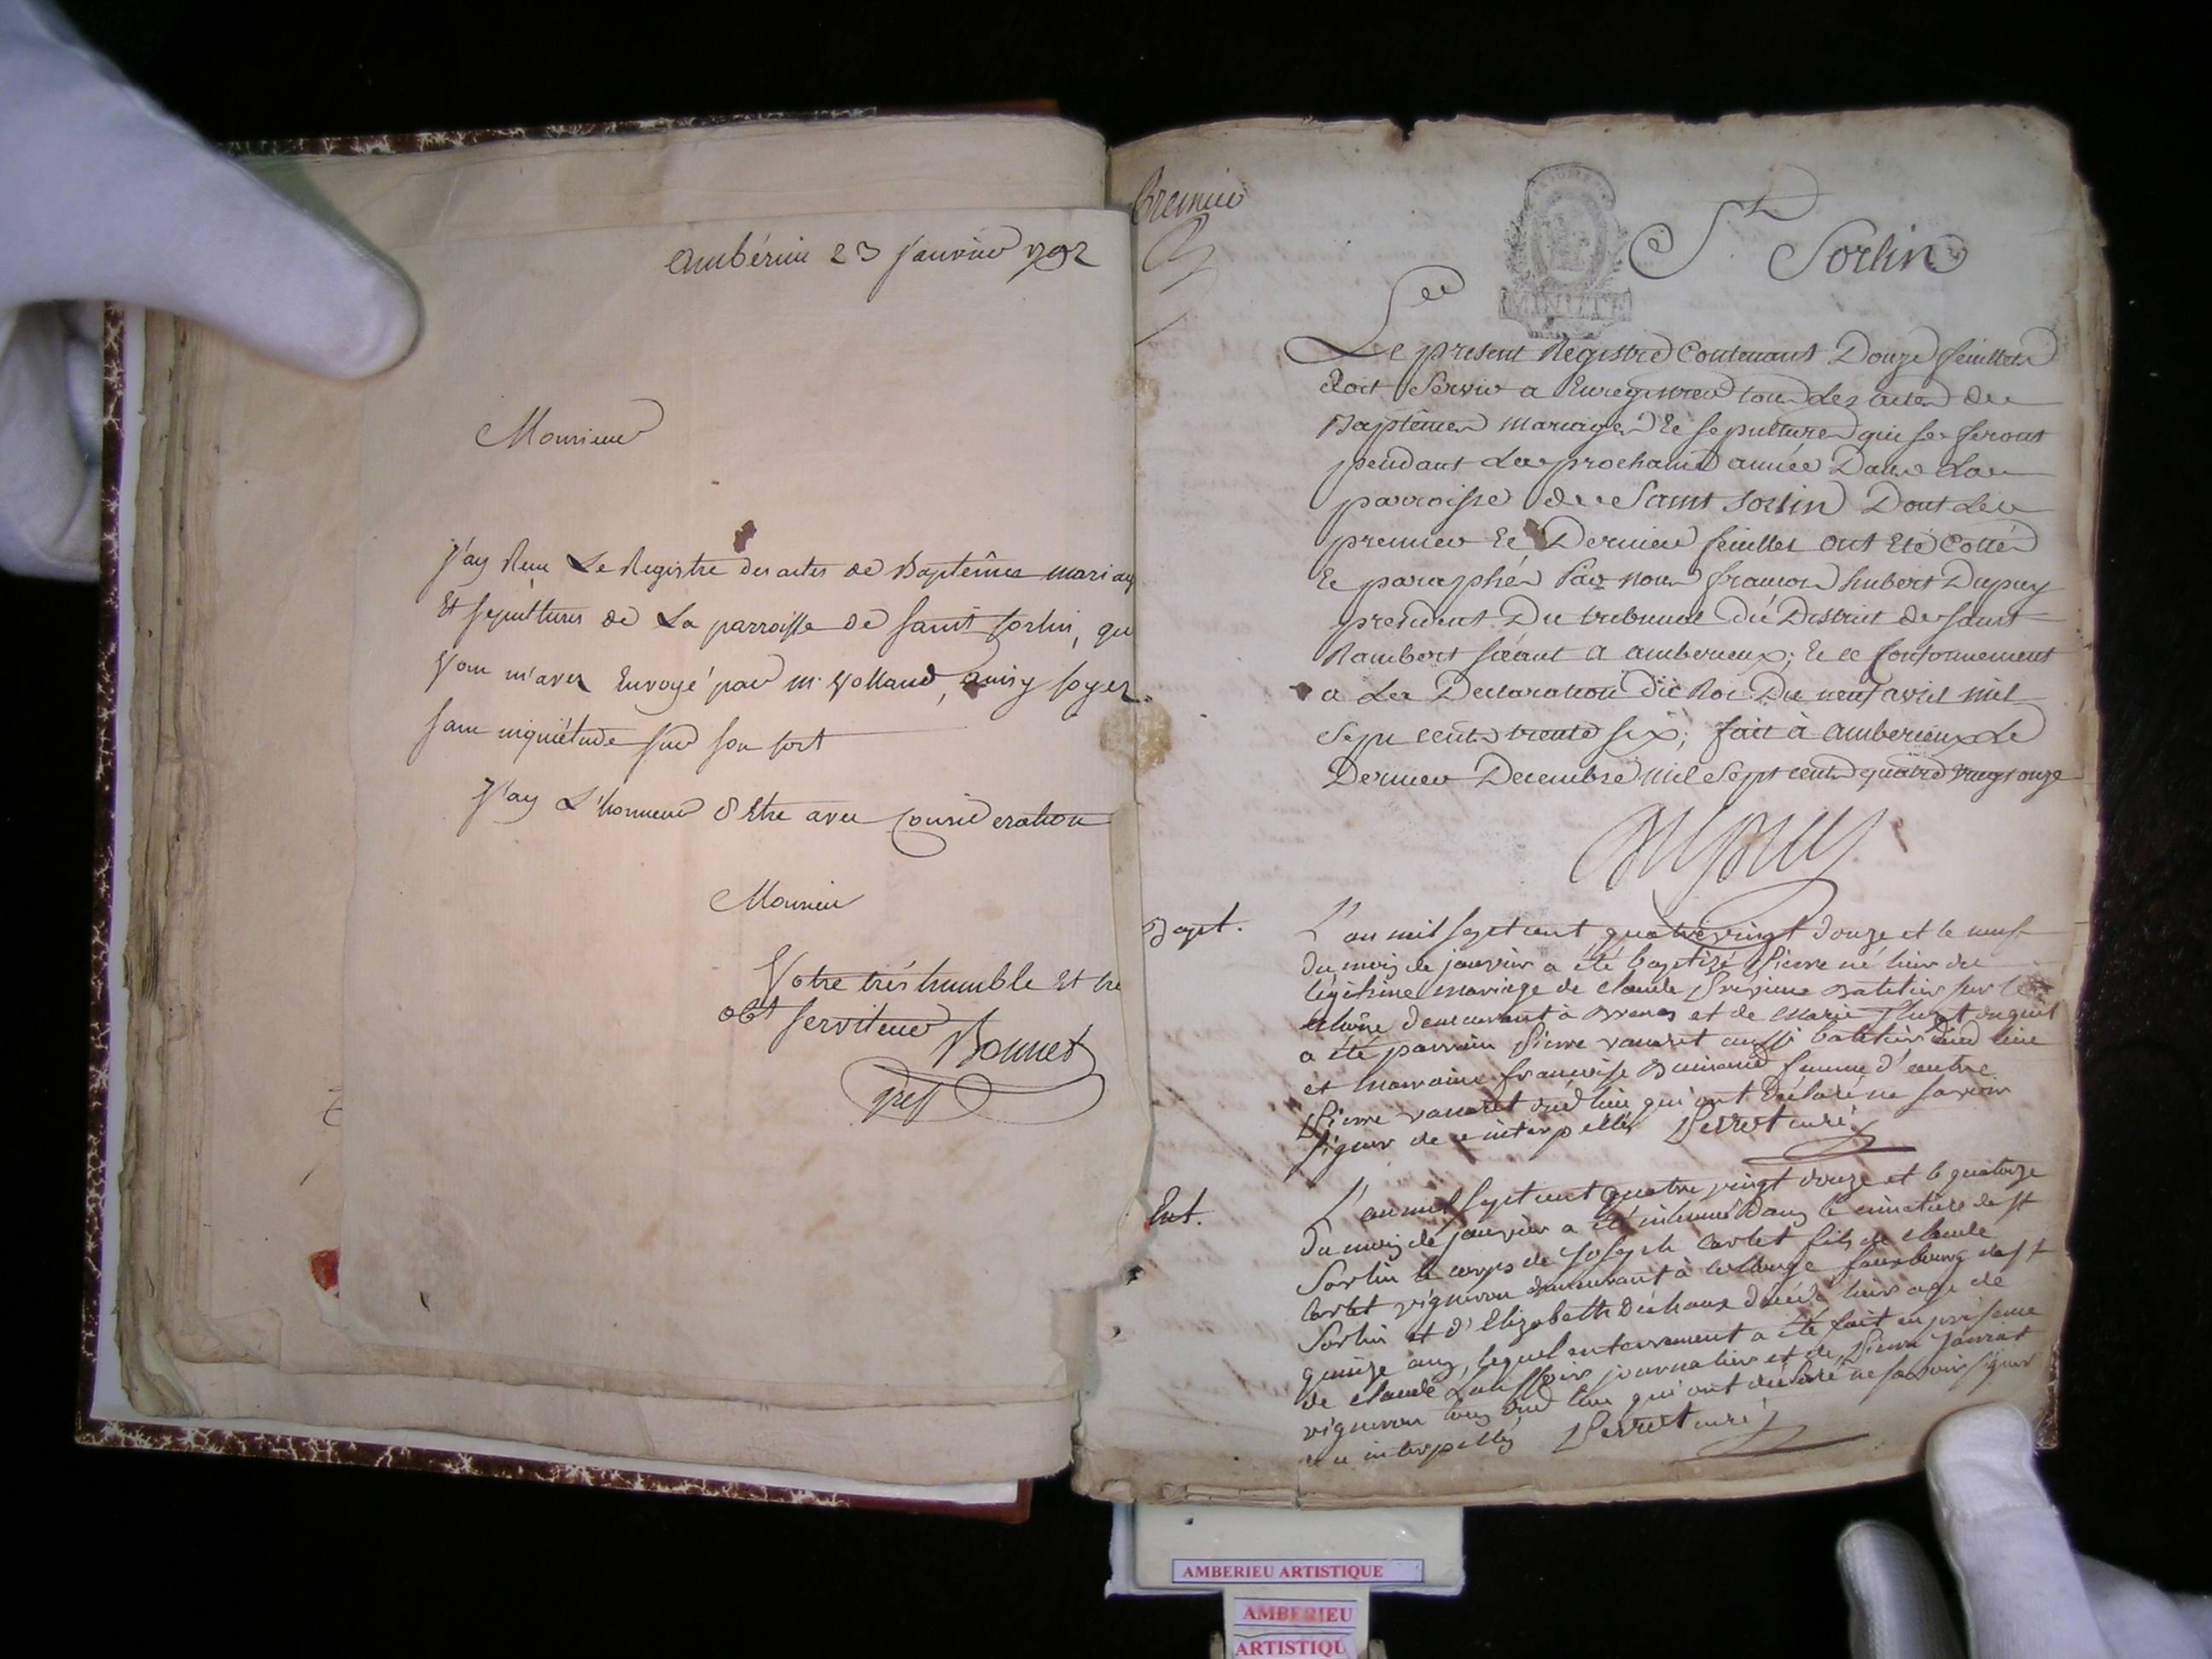 Ambérieu 23 janvier 1792
Monsieur
J'ay Reçu Le Registre des actes de Baptêmes mariag
Et sepultures de La parroisse de saint sorlin, qu
Vous m'aves Envoyé par mr Volland, ainsy soyez
sans inquiétude sur son sort
J'ay L'honneur d'Etre avec Consideration
Monsieur
Votre très humble Et trè
obt serviteur
Bonnet
Premier
St Sorlin
Le present Registre Contenant Douze feuillets
doit Servir a Enregistrer tous Les actes de
Baptêmes mariages Et sepultures qui se feront
pendant La prochaine année Dans La
parroisse de Saint Sorlin Dont Le
premier Et Dernier feuillet ont Eté Cottés
Et paraphés Par nous françois hubert Dupuy
president Du tribunal du District de saint
Rambert séant a amberieux; Et ce Conformement
a La Declaration du Roi Du neuf avril mil
Sept cent trente six; fait à amberieux Le
Dernier Decembre mil Sept cent quatre vingt onze
Dupuy
Bapt.
L'an mil sept cent quatre vingt douze et le neuf
du mois de janvier a été baptisé Pierre né hier du
légitime mariage de claude batelier sur le
Rhône demeurant à et de Marie duquel
a été parrain Pierre vanaret aussi batelier dud lieu
et marraine françoise femme d'autre
Pierre vanaret dud lieu qui ont déclaré ne savoir
signer de ce interpellés Perret curé
Ent.
L'an mil sept cent quatre vingt douze et le quatorze
du mois de janvier a été inhumé dans le cimetière de st
Sorlin le corps de Joseph Carlet fils de claude
Carlet vigneron demeurant à Collonge faurbourg de st
Sorlin et d'Elizabeth Dechaux décédé hier age de
quinze ans, lequel enterrement a été fait en présence
de claude journalier et de Pierre Janrat
vigneron tous dud lieu qui ont déclaré ne savoir signer
de ce interpellés Perret curé
AMBERIEU ARTISTIQUE
AMBERIEU
ARTISTIQU